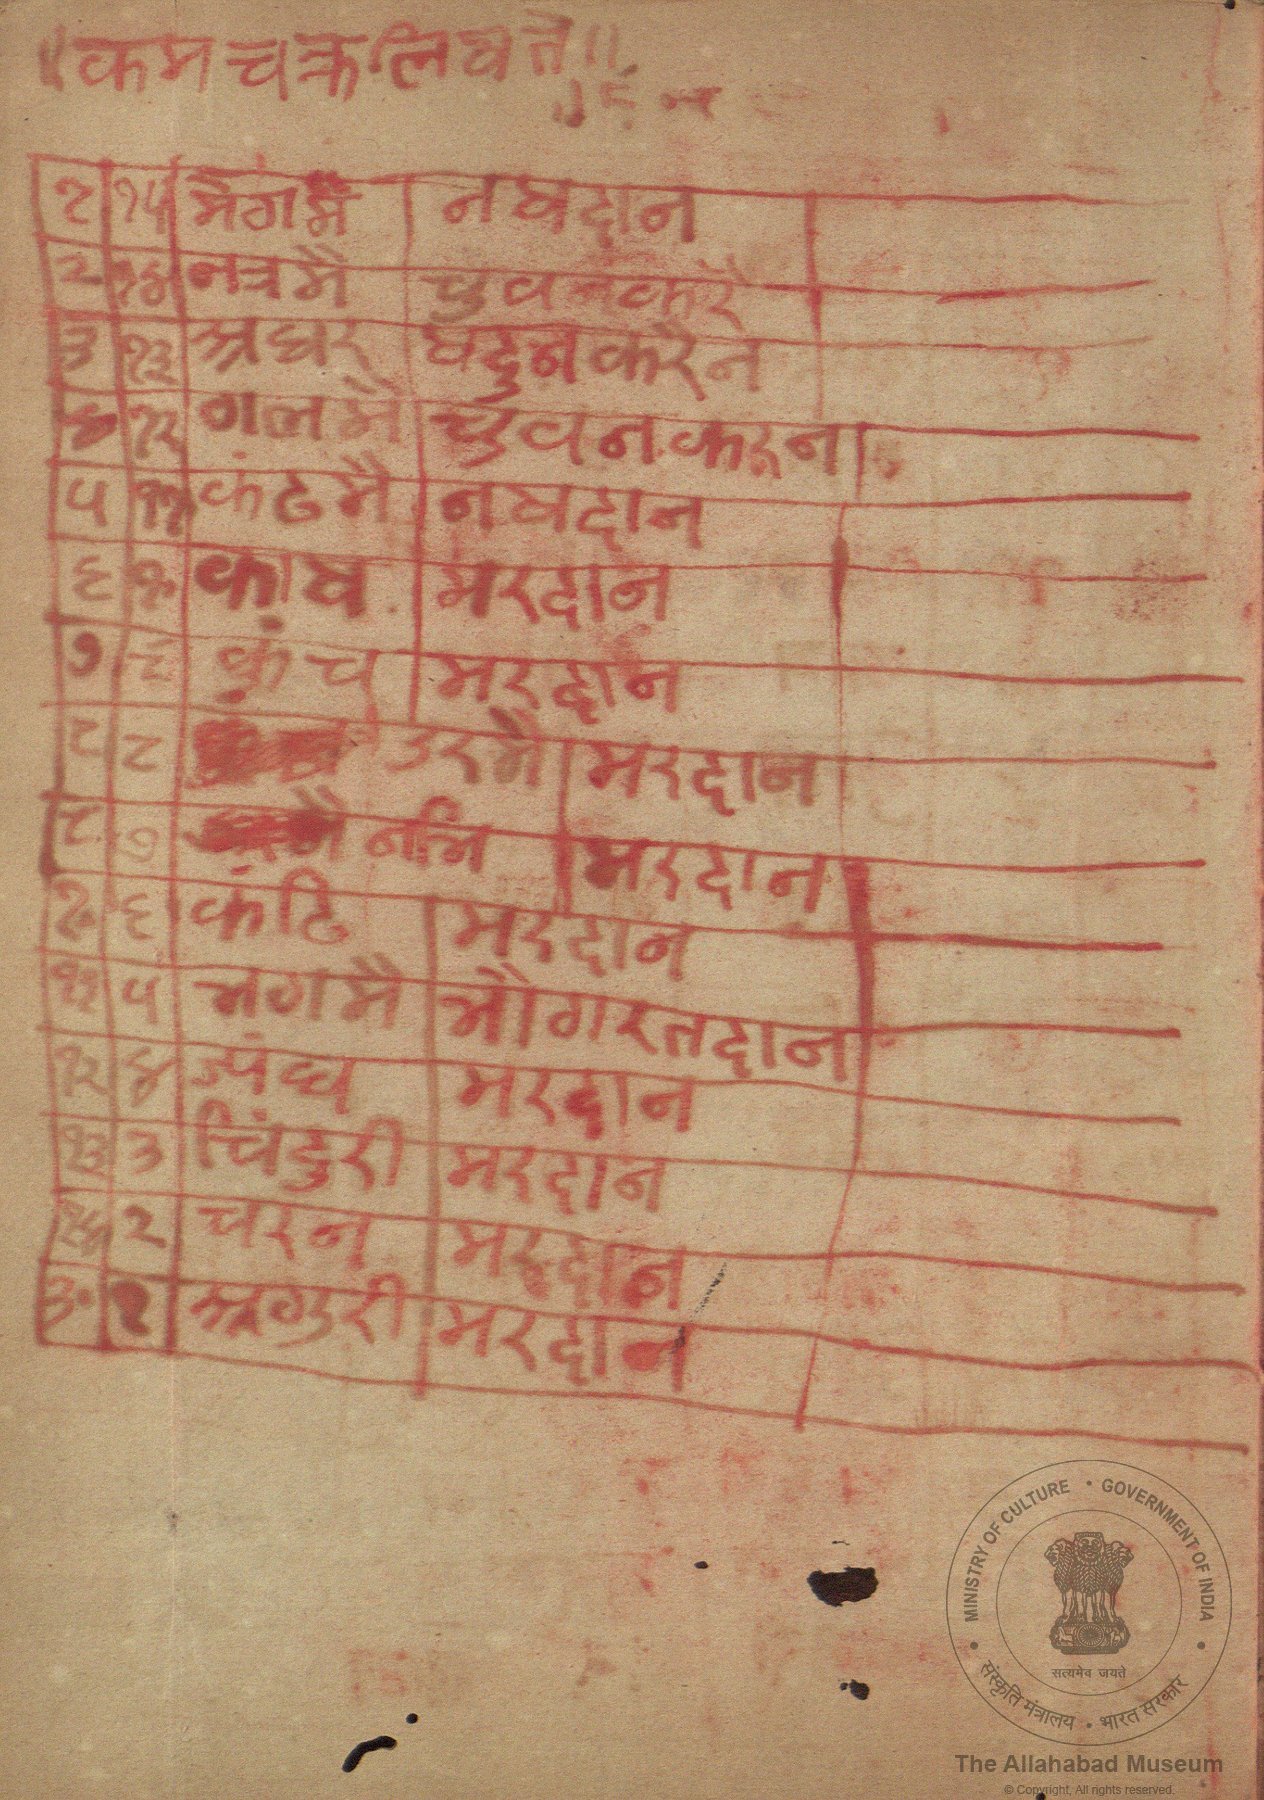 ॥कमचक्रलिषते॥
१ १५ मैगमै नषदान
२ १४ नत्रमै चुवनकरै
३ १३ अधर षदुनकरैन
४ १२ गलमै चुवनकरन
५ ११ कंठमै नषदान
६ १० काष मरदान
७ कुंच मरदान
८ ८ उरमै मरदान
७ नाभि मरदान
६ कंटि मरदान
११ ५ भगमै भौगरतदान
१२ ४ मरदान
१३ ३ पिंडुरी मरदान
१४ २ चरन मरदान
३० १ अगुरी मरदान
MINISTRY OF CULTURE • GOVERNMENT OF INDIA
सत्यमेव जयते
संस्कृति मंत्रालय • भारत सरकार
The Allahabad Museum
© Copyright, All rights reserved.